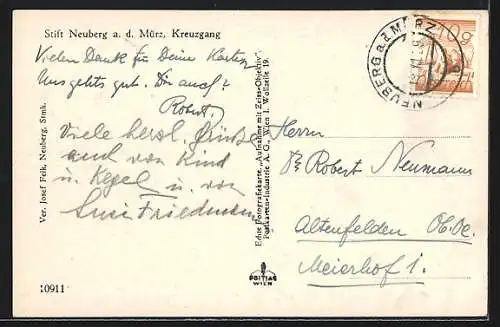 Stift Neuberg a. d. Mürz, Kreuzgang
Vielen Dank für Deine Karten
Uns gehts gut. Dir auch?
Robert.
Viele herzl. Grüße
auch von Kind
u. Kegel u. von
Susi Friedmann
Ver. Josef Feik, Neuberg, Stmk.
10911
Echte Fotografiekarte, „Aufnahme mit Zeiss-Objektiv"
Postkarten-Industrie A. G., Wien I. Wollzeile 19.
POSTIAG
WIEN
NEUBERG a.d. MÜRZ
10 g
Herrn
Dr Robert Neumann
Altenfelden Ob. Oe.
Meierhof 1.